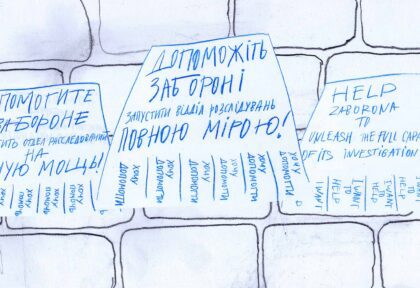 ПОМОГИТЕ
ЗАБОРОНЕ
ОТДЕЛ РАССЛЕДОВАНИЙ
НА
МОЩЬ!
ДОПОМОЖІТЬ
ЗАБОРОНІ
ЗАПУСТИТИ ВІДДІЛ РОЗСЛІДУВАНЬ
ПОВНОЮ МІРОЮ!
ХОЧУ ДОПОМОГТИ
ХОЧУ ДОПОМОГТИ
ХОЧУ ДОПОМОГТИ
ХОЧУ ДОПОМОГТИ
ХОЧУ ДОПОМОГТИ
ХОЧУ ДОПОМОГТИ
HELP
ZABORONA
TO
UNLEASH THE FULL
OF ITS INVESTIGATION
I WANT TO HELP
I WANT TO HELP
I WANT TO HELP